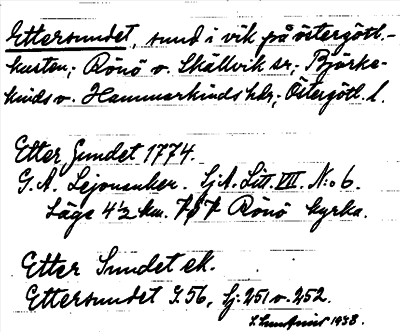 Ettersundet, sund i vik på östergötl.-
kusten; Rönö o. Skällvik sr; Björke-
kinds o. Hammarkinds hdr; Östergötl. l.
Etter Sundet 1774.
G. A. Lejonanker. Sj.A. Litt. VII. N:o 6.
Läge 4½ km. Rönö kyrka.
Etter Sundet ek.
Ettersundet G.56, Sj. 251 o. 252.
1938.